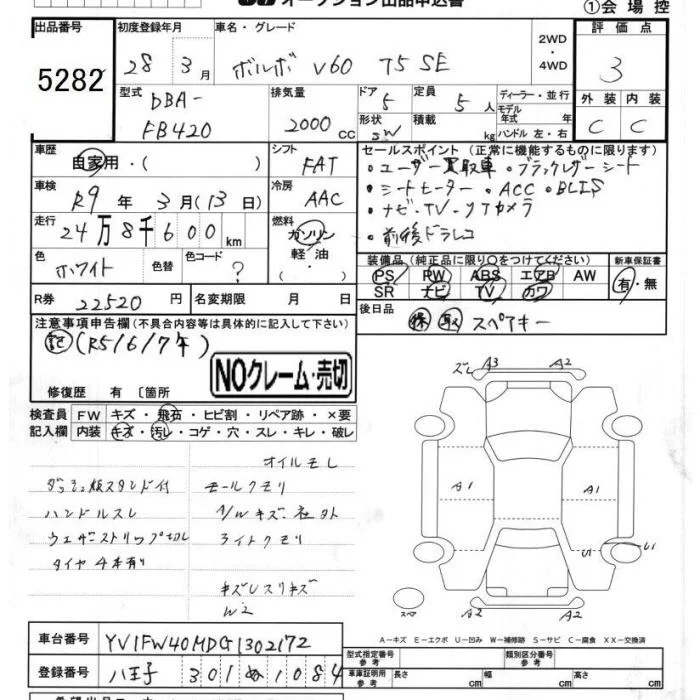 オークション出品申込書
①会場控
出品番号
5282
初度登録年月
28年 3月
車名・グレード
ボルボ V60 T5 SE
2WD
・
4WD
評価点
3
外装 内装
C C
型式
DBA-
FB420
排気量
2000cc
ドア
5
形状
SW
定員
5人
積載
kg
ディーラー・並行
モデル
年式 年
ハンドル 左・右
車歴
自家用・( )
シフト
FAT
車検
R9年 3月(13日)
冷房
AAC
走行
24万8千600km
燃料
ガソリン
軽油
( )
色
ホワイト
色替
色コード
?
R券
22520円
名変期限 月 日
セールスポイント (正常に機能するものに限ります)
・ユーザー買取車・ブラックレザーシート
・シートヒーター・ACC・BLIS
・ナビ・TV・リアカメラ
・前後ドラレコ
装備品 (純正品に限り○をつけてください)
PS PW ABS エアB AW
SR ナビ TV カワ
新車保証書
有・無
後日品
保 取 スペアキー
注意事項申告欄 (不具合内容等は具体的に記入して下さい)
記 (R5/6/7年)
NOクレーム・売切
修復歴 有 〔箇所
検査員
記入欄
FW キズ・飛石・ヒビ割・リペア跡・×要
内装 キズ・汚レ・コゲ・穴・スレ・キレ・破レ
オイルモレ
ダッシュ板スタンド付 モールクモリ
ハンドルスレ
ウェザーストリップ切レ ライトクモリ
タイヤ4本有り
キズUスリキズ
W2
ズレ A3 A2
A1 A1
U1
スペア
A2 A2
A−キズ E−エクボ U−凹み W−補修跡 S−サビ C−腐食 XX−交換済
車台番号
YV1FW40MDG1302172
登録番号
八王子 301 ぬ 1084
型式指定番号
参考
類別区分番号
参考
車庫証明用
参考
長さ cm 幅 cm 高さ cm